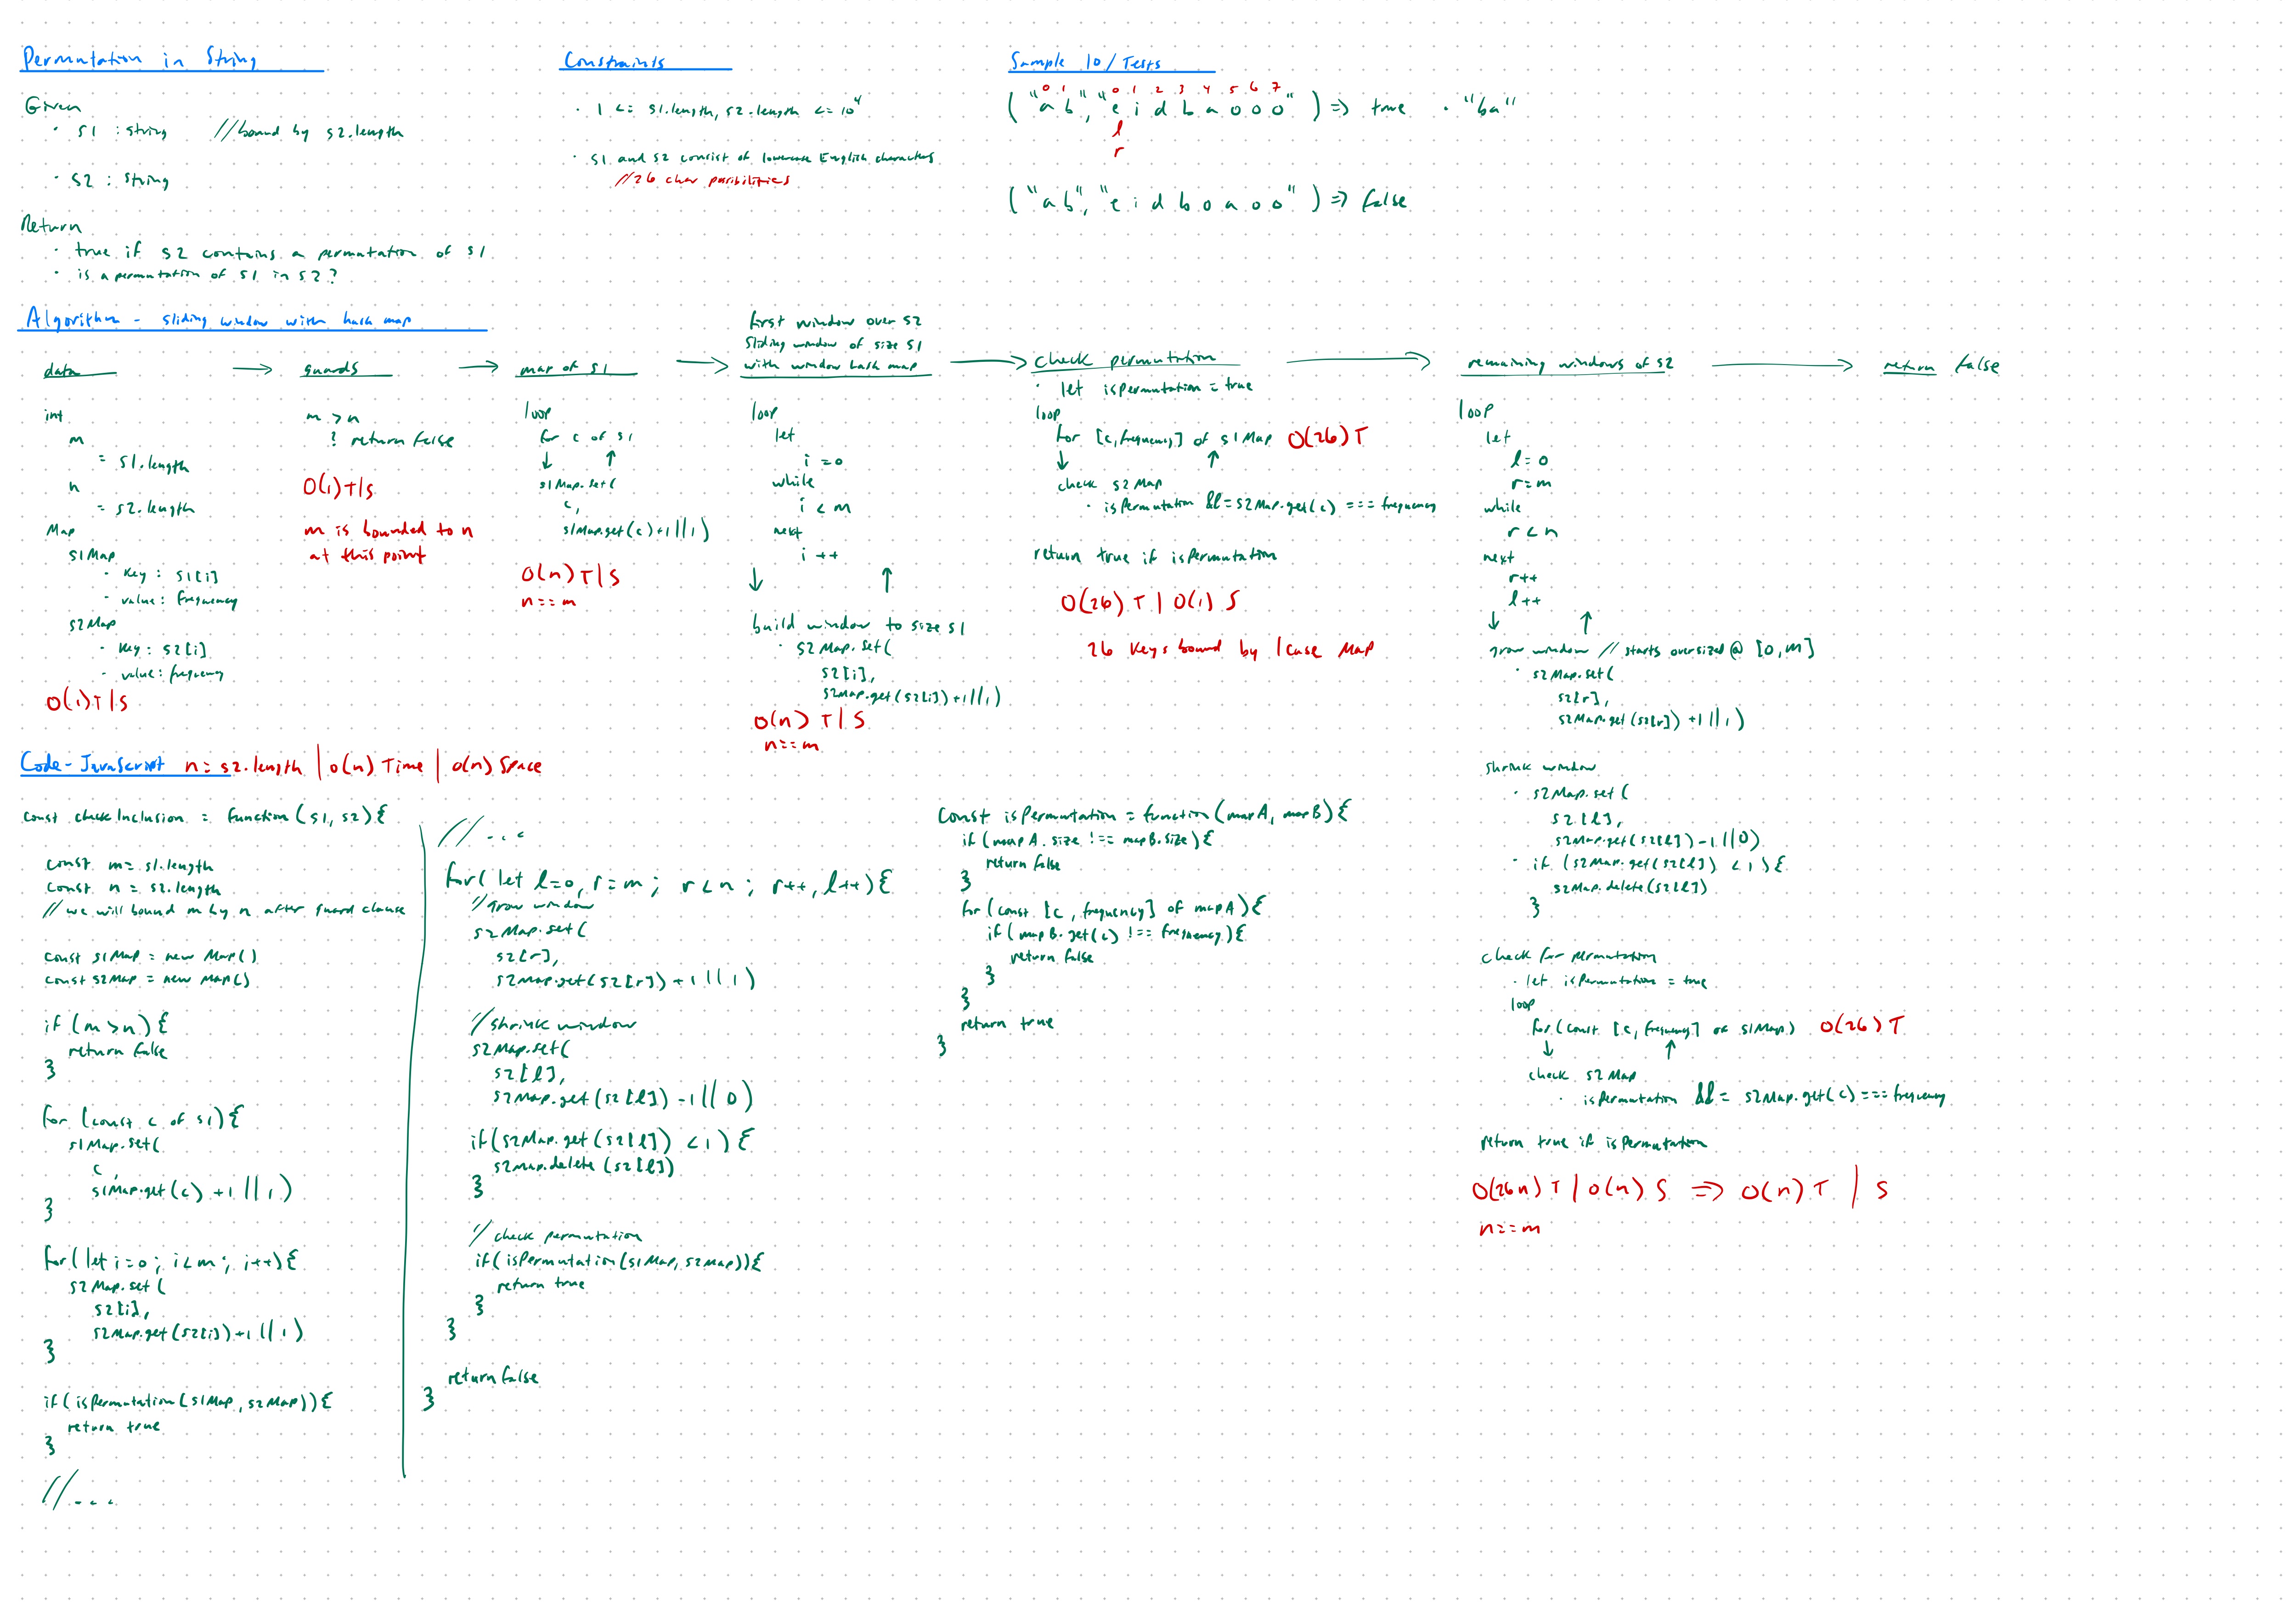 Permutation in String
Given
· s1 : string //bound by s2.length
· s2 : string
Return
· true if s2 contains a permutation of s1
· is a permutation of s1 in s2?
Constraints
· 1 <= s1.length, s2.length <= 10^4
· s1 and s2 consist of lowercase English characters
//26 char possibilities
Sample IO/Tests
0 1 0 1 2 3 4 5 6 7
("ab", "eidbaooo") => true · "ba"
l
r
("ab", "eidboaoo") => false
Algorithm - sliding window with hash map
data
int
m
= s1.length
n
= s2.length
Map
s1Map
- key : s1[i]
- value : frequency
s2Map
- key : s2[i]
- value : frequency
O(1) T|S
guards
m > n
? return false
O(1) T|S
m is bounded to n
at this point
map of s1
loop
for c of s1
s1Map.set(
c,
s1Map.get(c)+1||1)
O(n) T|S
n==m
first window over s2
sliding window of size s1
with window hash map
loop
let
i=0
while
i < m
next
i++
build window to size s1
· s2Map.set(
s2[i],
s2Map.get(s2[i])+1||1)
O(n) T|S
n==m
check permutation
· let isPermutation = true
loop
for [c,frequency] of s1Map O(26) T
check s2Map
· isPermutation &&= s2Map.get(c) === frequency
return true if isPermutation
O(26) T | O(1) S
26 keys bound by lcase map
remaining windows of s2
loop
let
l=0
r=m
while
r<n
next
r++
l++
grow window // starts oversized @ [0,m]
· s2Map.set(
s2[r],
s2Map.get(s2[r])+1||1)
shrink window
· s2Map.set(
s2[l],
s2Map.get(s2[l])-1||0)
· if (s2Map.get(s2[l]) <1){
s2Map.delete(s2[l])
}
check for permutation
· let isPermutation = true
loop
for(const [c,frequency] of s1Map) O(26) T
check s2Map
· isPermutation &&= s2Map.get(c)===frequency
return true if isPermutation
O(26n) T | O(n) S => O(n) T | S
n==m
return false
Code - JavaScript n = s2.length | O(n) Time | O(n) Space
const checkInclusion = function(s1, s2){
const m = s1.length
const n = s2.length
// we will bound m by n after guard clause
const s1Map = new Map()
const s2Map = new Map()
if (m>n){
return false
}
for (const c of s1){
s1Map.set(
c,
s1Map.get(c)+1||1)
}
for(let i=0; i<m; i++){
s2Map.set(
s2[i],
s2Map.get(s2[i])+1||1)
}
if(isPermutation(s1Map, s2Map)){
return true
}
//...
//...
for(let l=0, r=m; r<n; r++, l++){
//grow window
s2Map.set(
s2[r],
s2Map.get(s2[r])+1||1)
//shrink window
s2Map.set(
s2[l],
s2Map.get(s2[l])-1||0)
if(s2Map.get(s2[l]) <1){
s2Map.delete(s2[l])
}
// check permutation
if(isPermutation(s1Map, s2Map)){
return true
}
}
return false
}
const isPermutation = function(mapA, mapB){
if(mapA.size !== mapB.size){
return false
}
for(const [c, frequency] of mapA){
if(mapB.get(c) !== frequency){
return false
}
}
return true
}